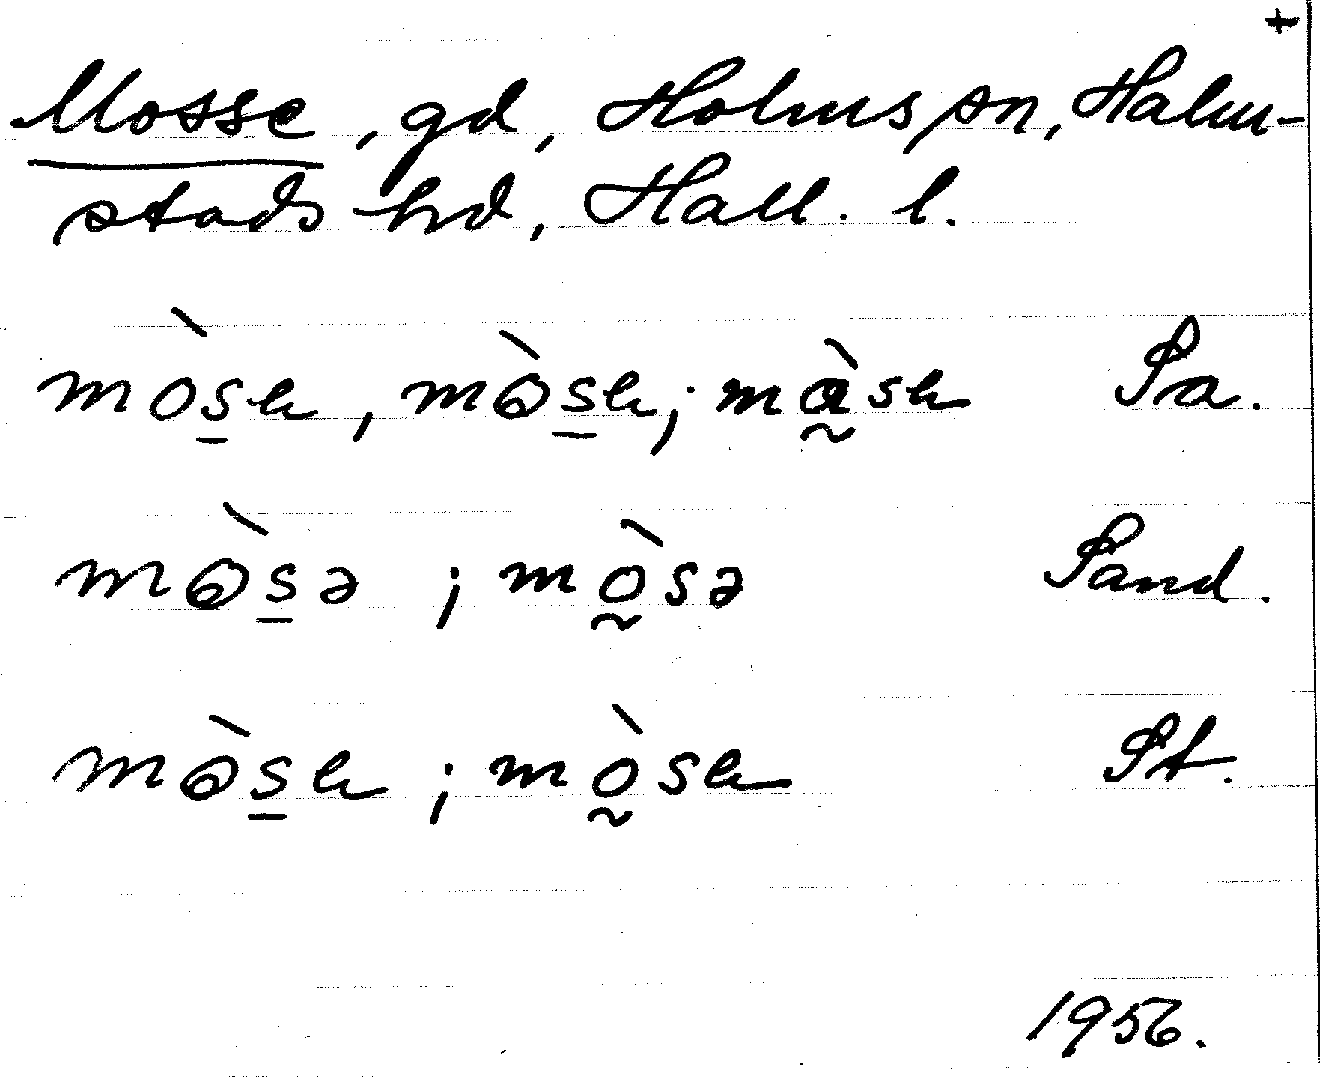 +
Mosse, gd, Holms sn, Halm-
stads hrd, Hall. l.
mòs̱e, mòs̱e; mò̰se Sa.
mòs̱ə; mò̰sə Sand.
mòs̱e; mò̰se St.
1956.